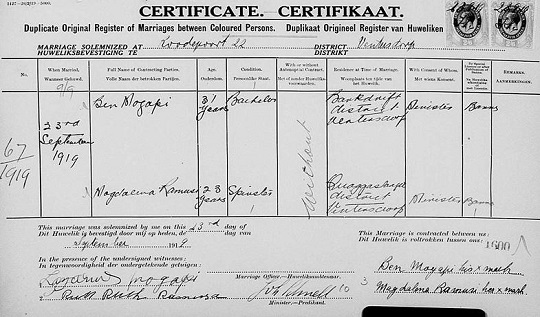 CERTIFICATE. CERTIFIKAAT.
Duplicate Original Register of Marriages between Coloured Persons. Duplikaat Origineel Register van Huweliken
MARRIAGE SOLEMNIZED AT
HUWELIKSBEVESTIGING TE
DISTRICT Ventersdorp
DISTRIKT
No.
When Married.
Wanneer Gehuwd.
Full Name of Contracting Parties.
Volle Naam der betrokken Partijen.
Age.
Ouderdom.
Condition.
Persoonlike Staat.
With or without Antenuptial Contract.
Met of zonder Huweliks voorwaarden.
Residence at Time of Marriage.
Woonplaats ten tijde van het Huwelik.
With Consent of Whom.
Met wiens Konsent.
REMARKS.
AANMERKINGEN.
67/1919
23rd
September
1919
Ben Mogapi
31 years
Bachelor
district
Ventersdorp
Minister
Banns
without
Magdalena Ramusi
23 years
Spinster
district
Ventersdorp
Minister
Banns
This marriage was solemnized by me on this 23rd day of
Dit Huwelik is bevestigd door mij op heden, de dag van
September 1919
This Marriage is contracted between us:
Dit Huwelik is voltrokken tussen ons:
In the presence of the undersigned witnesses:
In tegenwoordigheid der ondergetekende getuigen:
Mogapi
Ruth
Marriage Officer—Huweliksambtenaar.
Minister—Predikant.
Ben Mogapi his x mark
Magdalena Ramusi her x mark